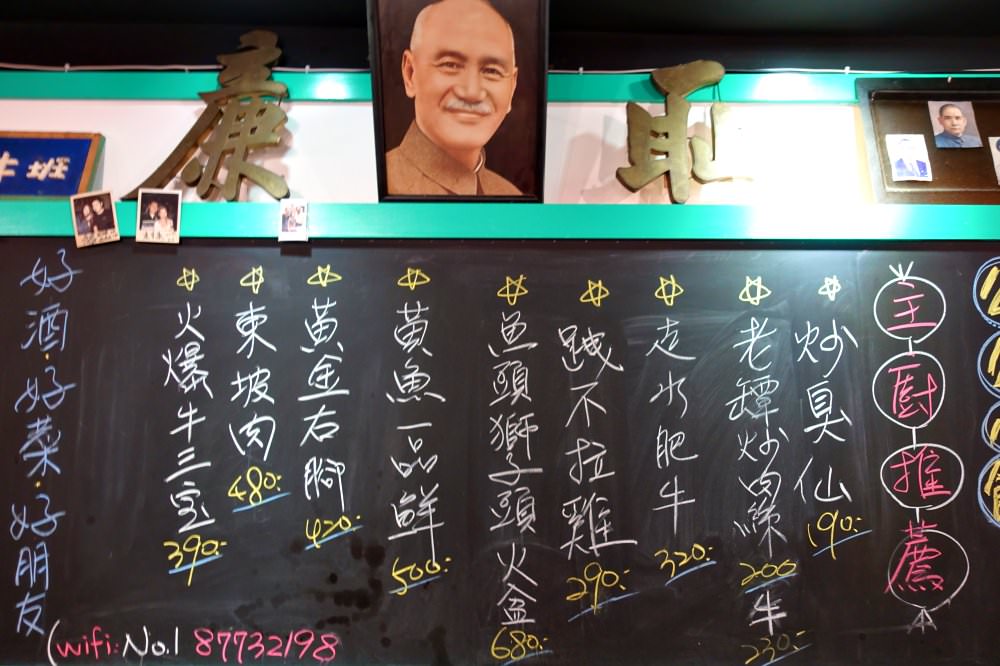 民
康
班
主廚推薦
炒臭仙 190.-
老罈炒肉絲 200 牛 230.-
走水肥牛 320.-
不拉雞 290.-
魚頭獅子頭火盆 680.-
黃魚一品鮮 500.-
黃金右腳 420.-
東坡肉 480.-
火爆牛三宝 390.-
好酒·好菜·好朋友
(wifi: No.1 87732198